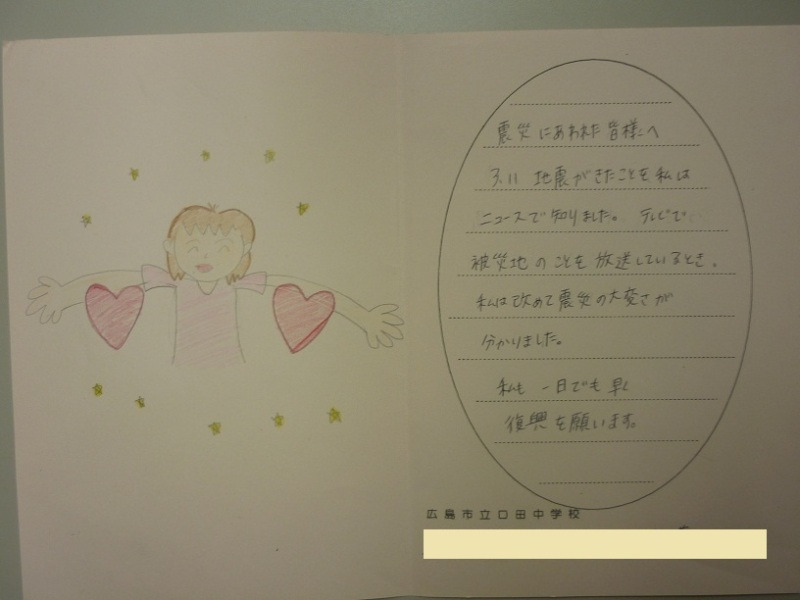 震災にあわれた皆様へ
3.11 地震がきたことを私は
ニュースで知りました。テレビで
被災地のことを放送しているとき、
私は改めて震災の大変さが
分かりました。
私も 一日でも早く
復興を願います。
広島市立口田中学校